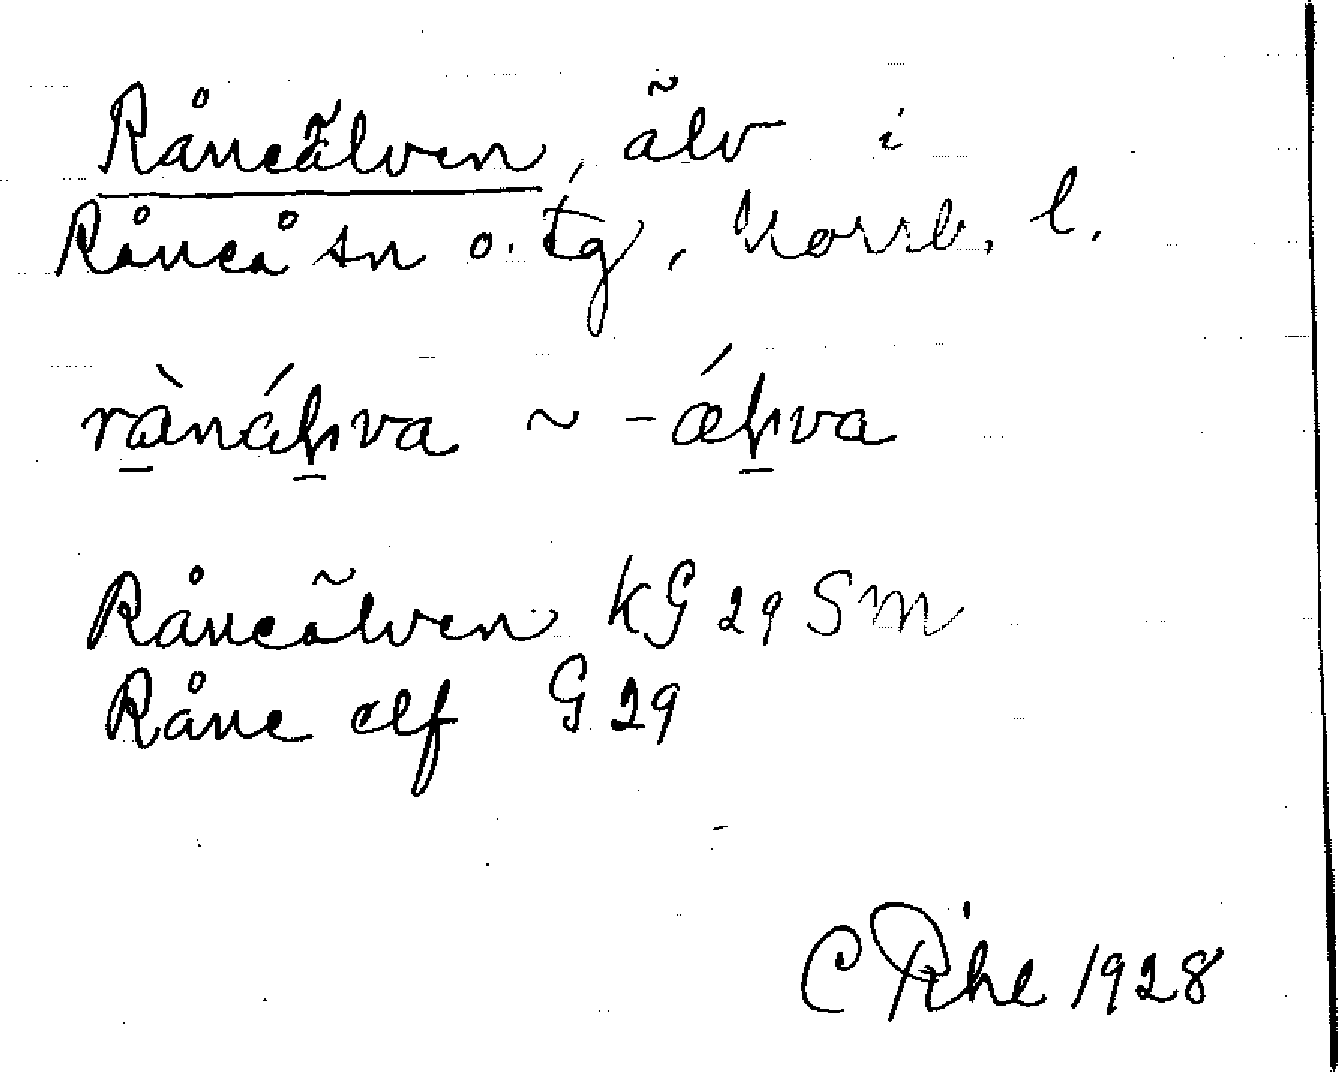 Råneälven, älv i
Råneå sn o. tg, Norrb. l.
rànáh̠va ~ -ǽh̠va
Råneälven KG 29 Sm
Råne elf G 29
C Pihl 1928